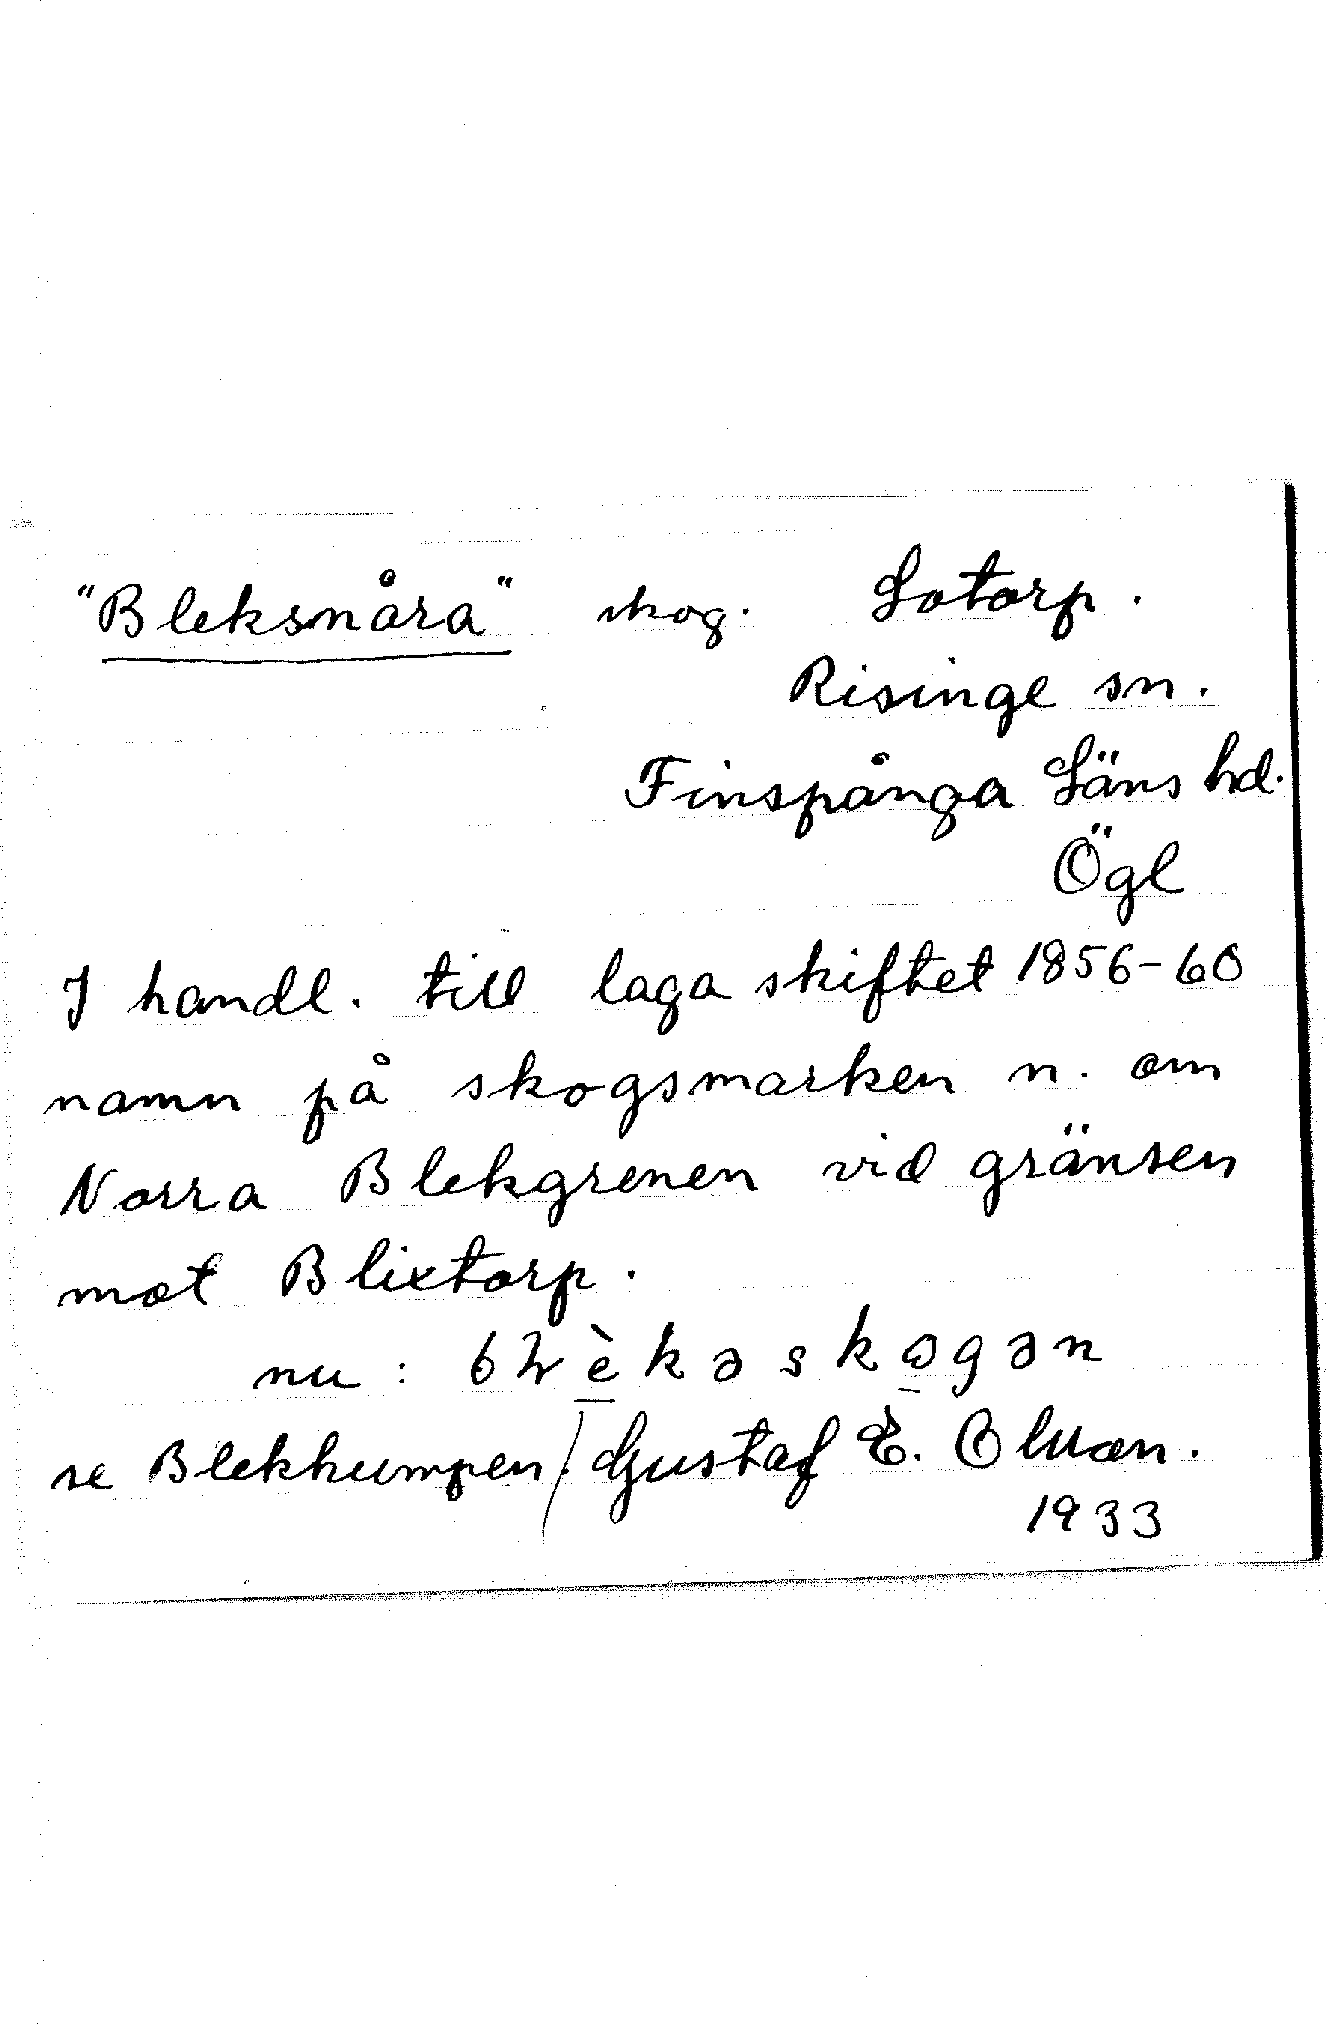 "Bleksnåra" skog. Lotorp.
Risinge sn.
Finspånga Läns hd.
Ögl
I handl. till laga skiftet 1856-60
namn på skogsmarken n. om
Norra Blekgrenen vid gränsen
mot Blixtorp.
nu:
se Blekkumpen. Gustaf E. Olson.
1933